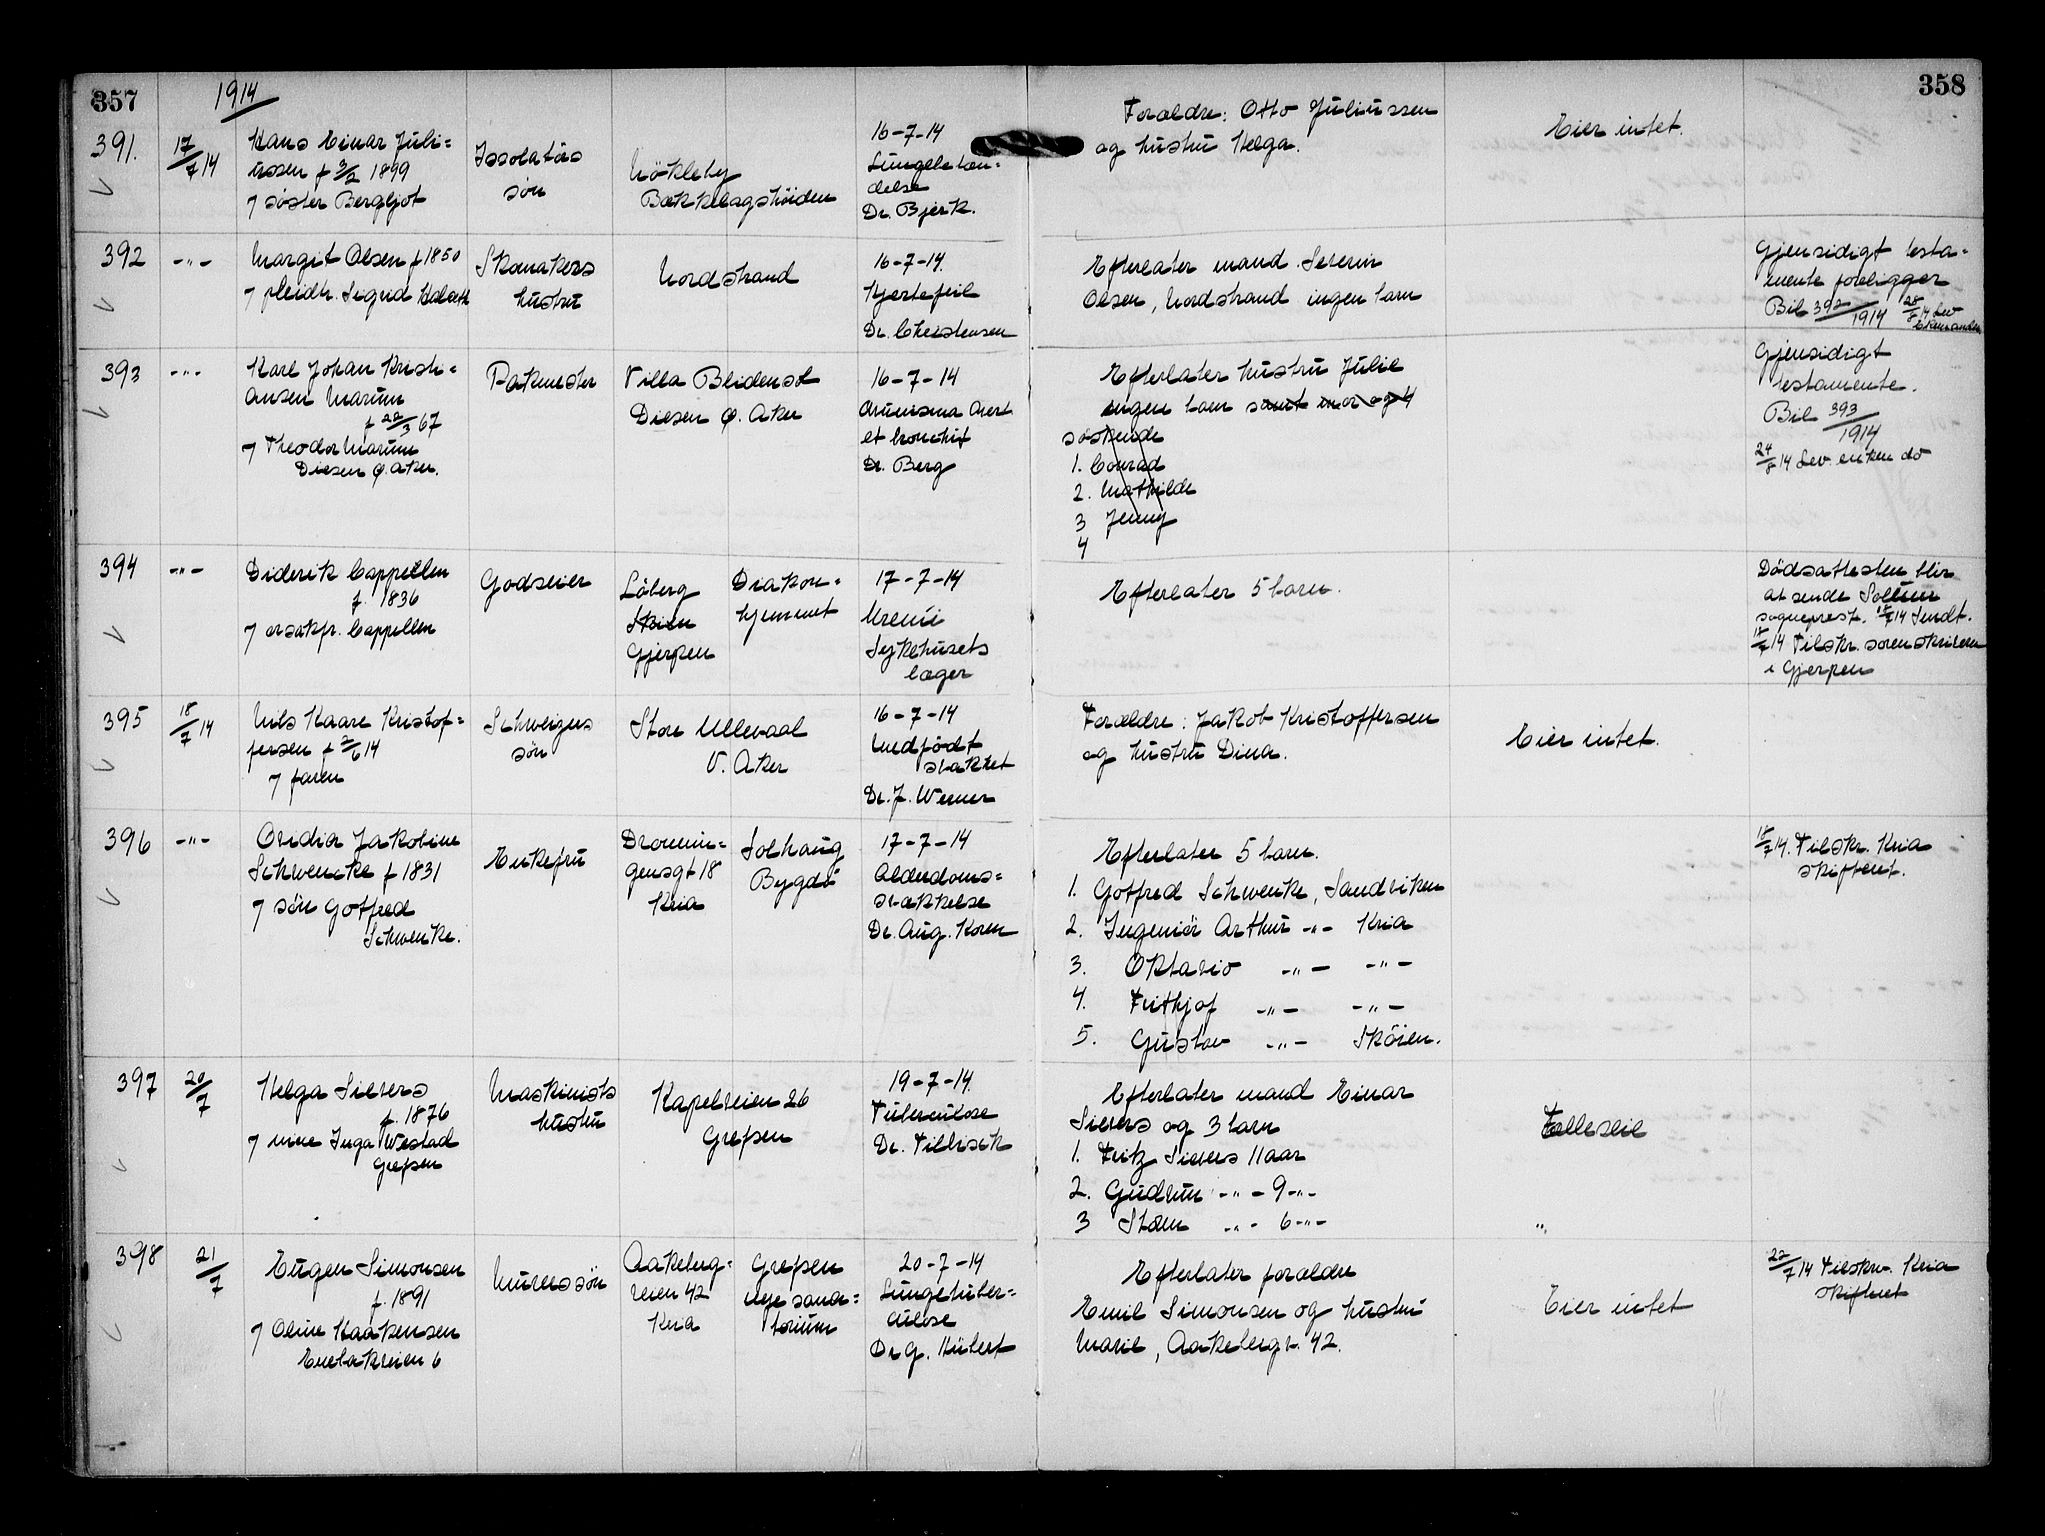 357
1914
358
391.
17/7 14
Hans Einar Juli=
ussen f 3/2 1899
7 søster Bergljot
Issolatørs
søn
Nökleby
Bækkelagshöiden
16-7-14
Lungebetæn=
delse
Dr. Bjerk.
Forældre: Otto Juliussen
og hustru Helga.
Eier intet.
392
-"-
Margit Olsen f 1850
7 pleidtr. Sigrid
Skomakers
hustru
Nordstrand
16-7-14.
Hjertefeil
Dr. Christensen
Efterlater mand Severin
Olsen, Nordstrand ingen barn
Gjensidigt testa=
mente foreligger
Bil 392/1914 28/8 14 Lev
393
-"-
Karl Johan Kristi=
ansen Marum
f 22/3 67
7 Theodor Marum
Diesen Ø. Aker.
Pakmester
Villa Blidensol
Diesen Ø. Aker
16-7-14
et bronchit
Dr. Berg
Efterlater hustru Julie
ingen barn samt mor og 4
søskende
1. Conrad
2. Mathilde
3 Jenny
4
Gjensidigt
testamente.
Bil 393/1914
24/8 14 Lev. enken do
394
-"-
Diderik Cappelen
f. 1836
7 Cappelen
Godseier
Löberg
Skien
Gjerpen
Diakon=
hjemmet
17-7-14
Uremi
Sykehusets
læger
Efterlater 5 barn.
Dödsattesten blir
at sende Sollum
sogneprest. 18/7 14 Sendt.
18/7 14 Tilskr. sorenskriveren
i Gjerpen
395
18/7 14
Nils Kaare Kristof=
fersen f 2/6 14
7 faren
Schweizers
søn
Store Ullevaal
V. Aker
16-7-14
Medfödt
svakhet
Dr. J. Werner
Forældre: Jakob Kristoffersen
og hustru Dina.
Eier intet.
396
-"-
Ovidia Jakobine
Schwencke f 1831
7 sön Gotfred
Schwenke.
Enkefru
Dronnin=
gensgt 18
Kria
Solhaug
Bygdö
17-7-14
Alderdoms=
svakkelse
Dr. Aug. Koren
Efterlater 5 barn.
1. Gotfred Schwenke, Sandviken
2. Ingeniör Arthur -"- Kria
3. Oktavio -"- -"-
4. Frithjof -"- -"-
5. Gustav -"- Sköien.
18/7 14. Tilskr. Kria
skifteret.
397
20/7
Helga Sievers
f. 1876
7 niece Inga Westad
Grefsen
Maskinists
hustru
Kapelveien 26
Grefsen
19-7-14.
Tuberkulose
Dr. Tillisch
Efterlater mand Einar
Sievers og 3 barn
1. Fritz Sievers 11 aar
2. Gudrun -"- 9 -"-
3 Sten -"- 6 -"-
Fælleseie
"
398
21/7
Eugen Simonsen
f. 1891
7 Oline Haakensen
Enebakveien 6
Murerssøn
Aakeberg=
veien 42
Kria
Grefsen
nye sana=
torium
20-7-14
Lungetuber=
culose
Dr G. Hübert
Efterlater forældre
Emil Simonsen og hustru
Marie, Aakebergv. 42.
Eier intet
22/7 14 Tilskr. Kria
skifteret